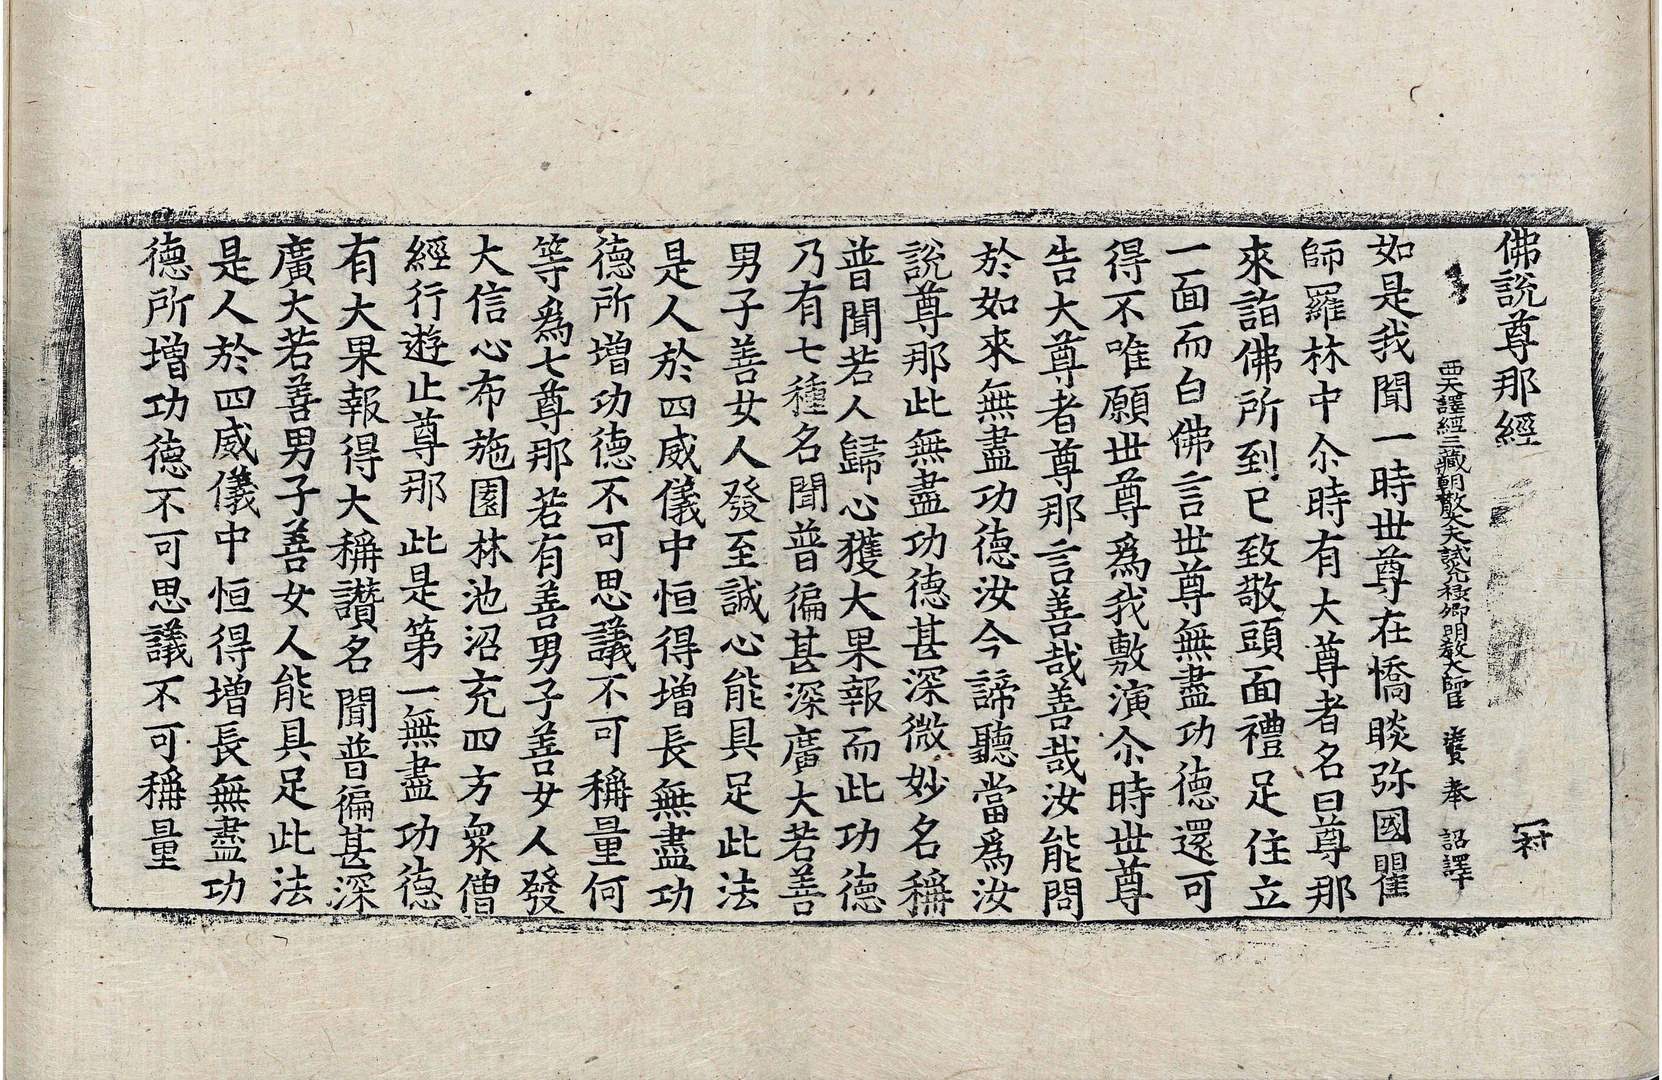 佛說尊那經 一 衬
西天譯經三藏朝散大夫試光祿卿明教大師臣 法賢奉 詔譯
如是我聞一時世尊在憍睒弥國瞿
師羅林中尒時有大尊者名曰尊那
來詣佛所到已致敬頭面禮足住立
一面而白佛言世尊無盡功德還可
得不唯願世尊爲我敷演尒時世尊
告大尊者尊那言善哉善哉汝能問
於如來無盡功德汝今諦聽當爲汝
說尊那此無盡功德甚深微妙名稱
普聞若人歸心獲大果報而此功德
乃有七種名聞普徧甚深廣大若善
男子善女人發至誠心能具足此法
是人於四威儀中恒得增長無盡功
德所增功德不可思議不可稱量何
等爲七尊那若有善男子善女人發
大信心布施園林池沼充四方衆僧
經行遊止尊那此是第一無盡功德
有大果報得大稱讚名聞普徧甚深
廣大若善男子善女人能具足此法
是人於四威儀中恒得增長無盡功
德所增功德不可思議不可稱量